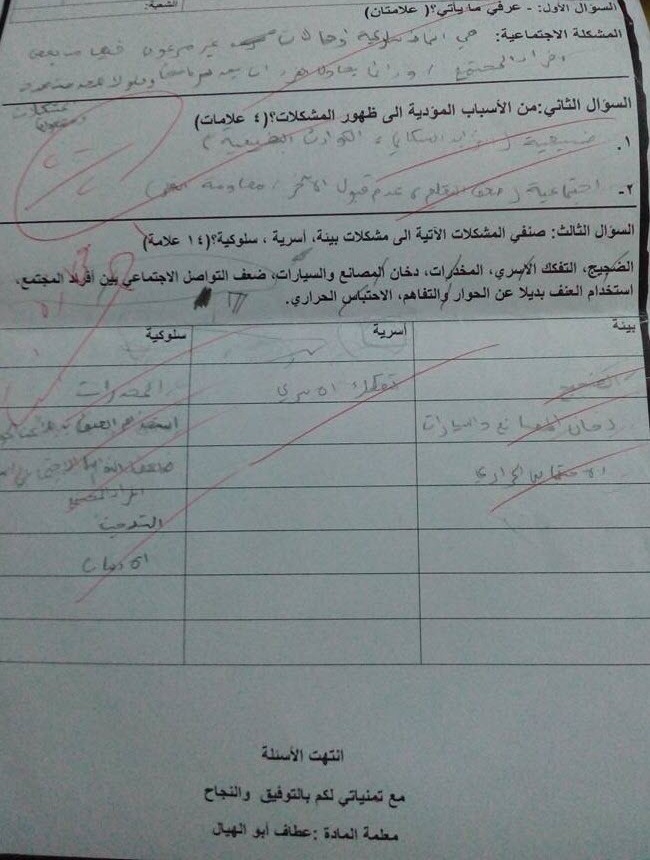 السؤال الأول: - عرفي ما يأتي؟( علامتان) الشعبة:
المشكلة الاجتماعية: هي انماط سلوكية أو حالات غير مرغوب فيها من بعض
أفراد المجتمع
السؤال الثاني:من الأسباب المؤدية الى ظهور المشكلات؟( ٤ علامات)
١. طبيعية ( الكوارث الطبيعية )
٢- اجتماعية ( عدم قبول الآخر
السؤال الثالث: صنفي المشكلات الآتية الى مشكلات بيئة، أسرية ، سلوكية؟( ١٤ علامة)
الضجيج، التفكك الاسري، المخدرات، دخان المصانع والسيارات، ضعف التواصل الاجتماعي بين أفراد المجتمع،
استخدام العنف بديلا عن الحوار والتفاهم، الاحتباس الحراري.
بيئة أسرية سلوكية
الضجيج تفكك الاسري المخدرات
دخان المصانع والسيارات استخدام العنف
الاحتباس الحراري ضعف التواصل الاجتماعي
افراد المجتمع
التدخين
انتهت الأسئلة
مع تمنياتي لكم بالتوفيق والنجاح
معلمة المادة :عطاف أبو الهيال